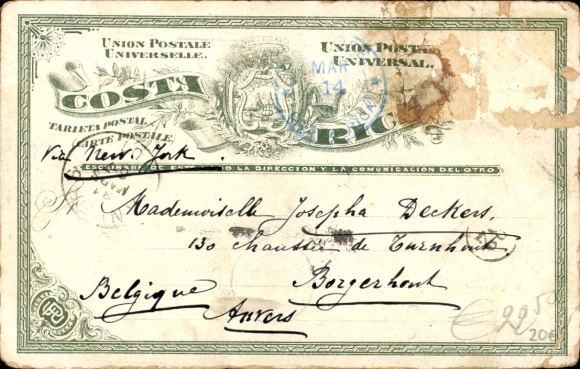 UNION POSTALE
UNIVERSELLE.
UNION POSTAL
UNIVERSAL.
COSTA
RICA
MAR
14
TARJETA POSTAL
CARTE POSTALE
Via New York.
LA DIRECCION Y LA COMUNICACION DEL OTRO
Mademoiselle Josepha Deckers,
130 chaussée de Turnhout.
Borgerhout
Belgique
Anvers
€22 50
20€